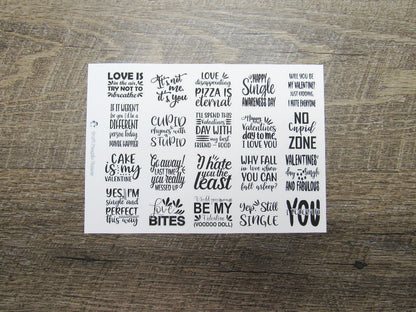 LOVE IS
in the air
TRY NOT TO
breathe
It's not
me,
it's
you
LOVE
is disappointing
PIZZA IS
eternal
HAPPY
Single
AWARENESS DAY
WILL YOU BE
MY VALENTINE?
JUST KIDDING,
I HATE EVERYONE
IF IT WEREN'T
for you I'd be a
DIFFERENT
person today
MAYBE HAPPIER
CUPID
rhymes with
STUPID
I'LL SPEND THIS
Valentines
DAY WITH
my best
FRIEND - FOOD
Happy
Valentines
day to me,
I LOVE YOU
NO
Cupid
ZONE
CAKE
is my
VALENTINE
Go away!
LAST TIME
you really
MESSED UP
I hate
you the
least
WHY FALL
in love when
YOU CAN
fall asleep?
VALENTINES'
day
single
AND FABULOUS
YES, I'M
single and
PERFECT
this way
love
BITES
BE MY
Valentine
(VOODOO DOLL)
Yep, Still
SINGLE
YOU